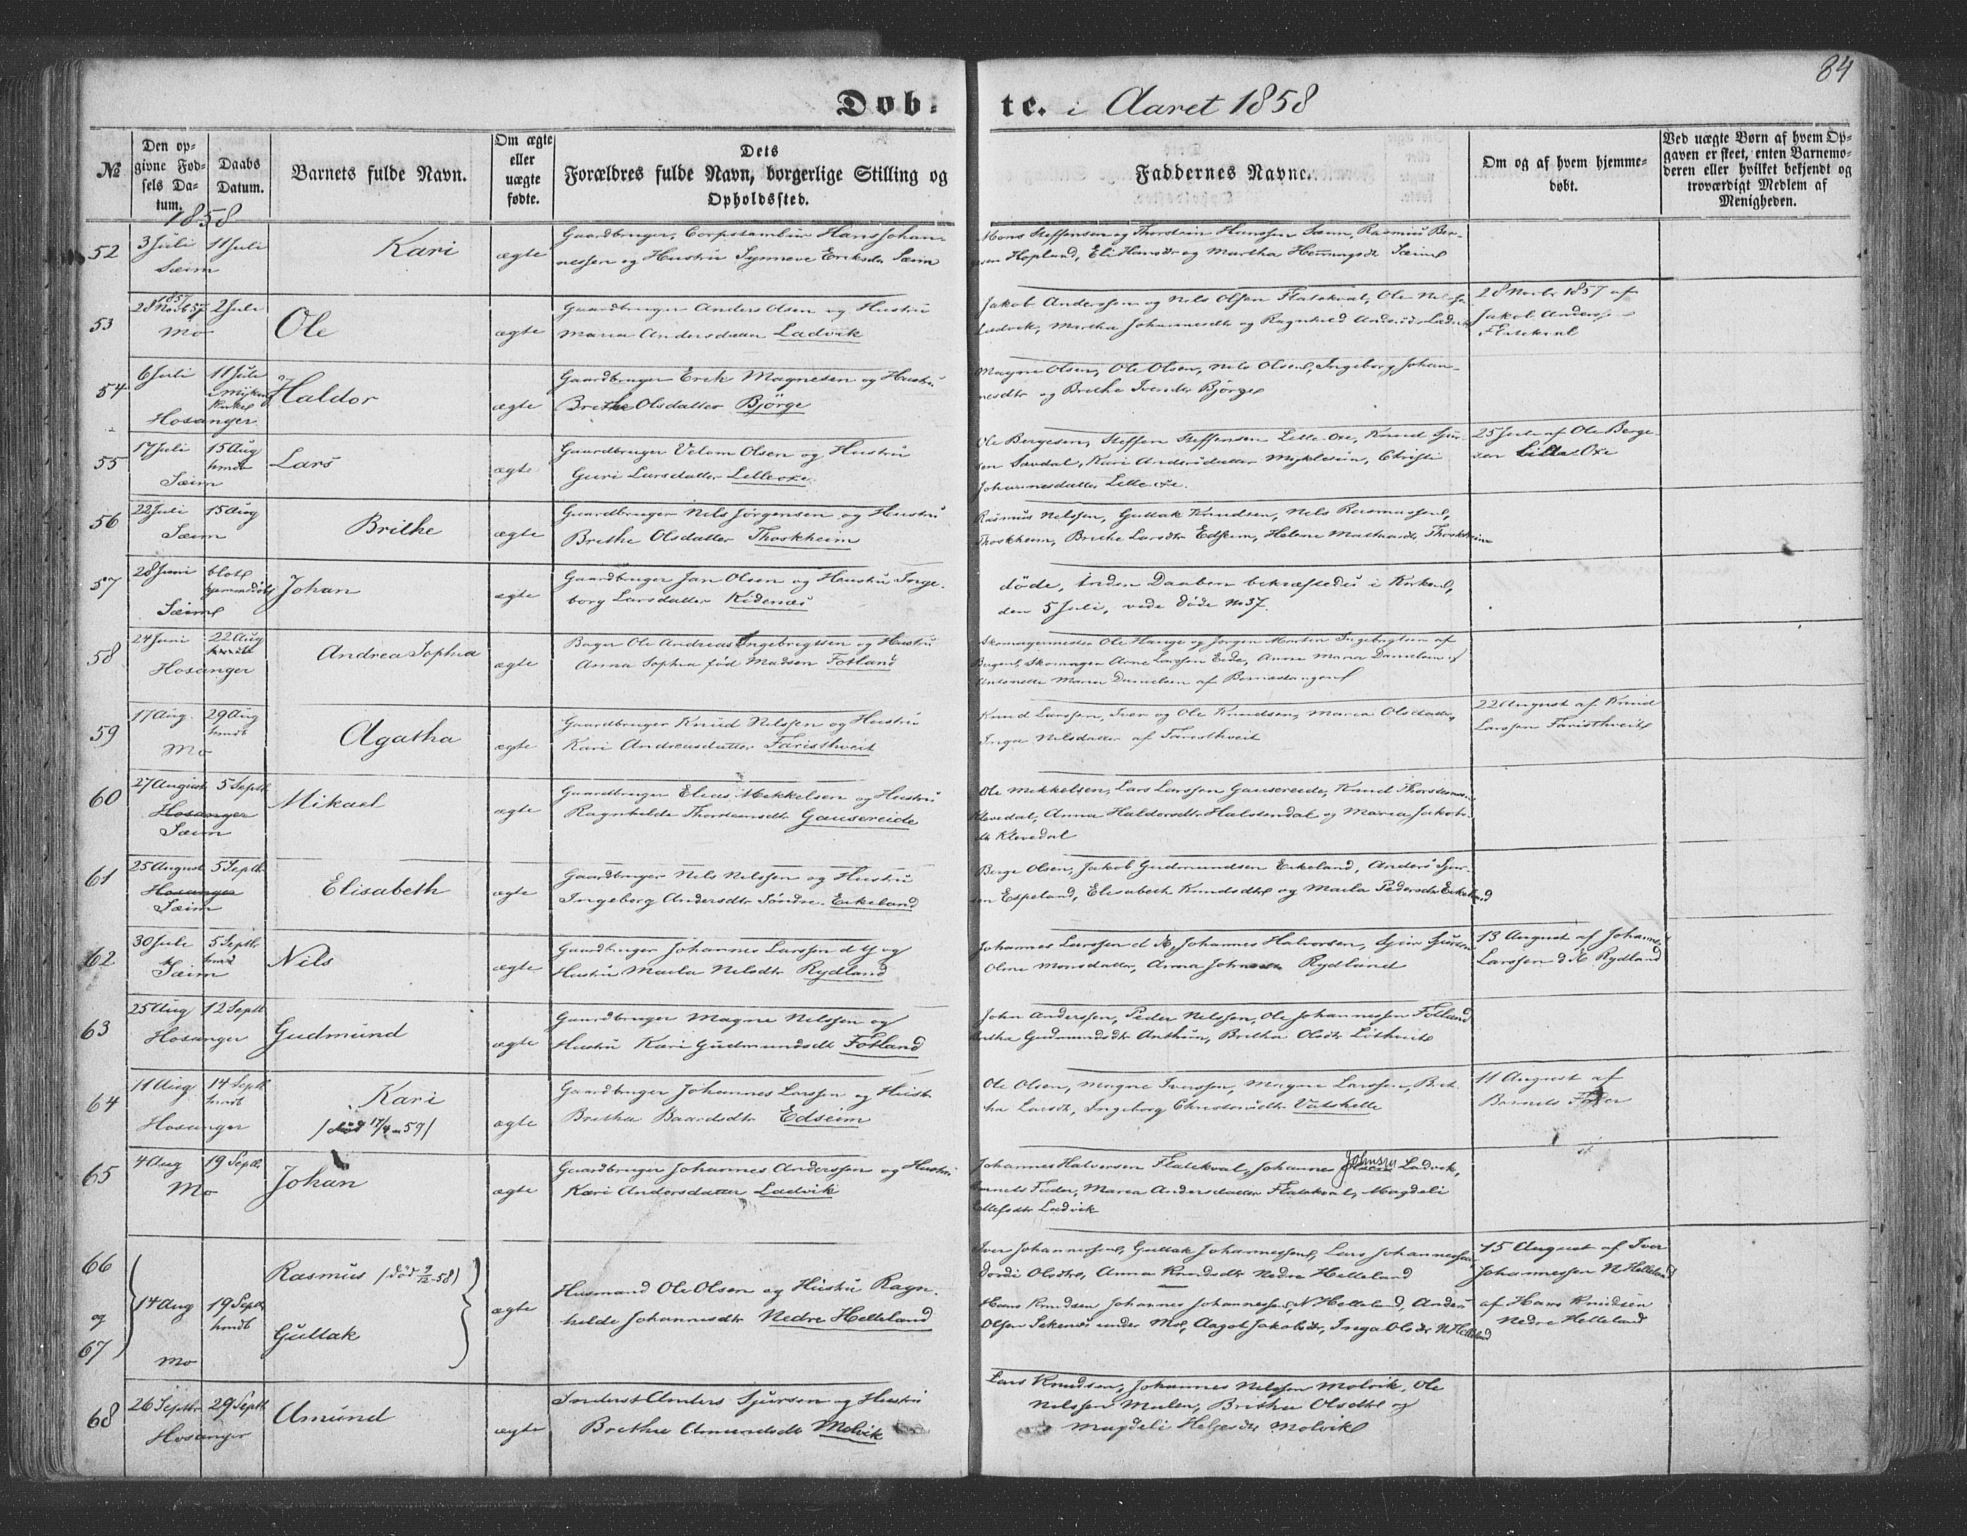 84
Døb- te. i Aaret 1858
№
Den op-
givne Fød-
sels Da-
tum.
Daabs
Datum.
Barnets fulde Navn.
Om ægte
eller
uægte
fødte.
Dets
Forældres fulde Navn, borgerlige Stilling og
Opholdssted.
Faddernes Navne.
Om og af hvem hjemme-
døbt.
Ved uægte Børn af hvem Op-
gaven er skeet, enten Barnemo-
deren eller hvilket bekjendt og
troværdigt Medlem af
Menigheden.
1858
52 3 Juli 11 Juli Kari ægte
Sæim
Gaardbruger, Hans Johan-
nessen og Hustru Synneve Eriksdr Sæim
Mons Steffensen og Thorstein Hanssen Sæim, Rasmus
Hopland, Eli Hansdr og Martha Hemmingsdr Sæim
53 1857 28 Novb 57 2 Juli Ole ægte
Mo
Gaardbruger Anders Olsen og Hustru
Maria Andersdatter Ladvik
Jakob Anderssen og Nels Olsen Flatekval, Ole
Ladvik, Martha Johannesdtr og Ragnhild Andersdr Ladvik
28 Novbr 1857 af
Jakob Anderssen
Flatekval
54 6 Juli 11 Juli i Kirke Haldor ægte
Hosanger
Gaardbruger Erik Magnesen og Hustru
Brithe Olsdatter Bjørge
Magne Olsen, Ole Olsen, Nels Olsen, Ingeborg Johan-
nesdtr og Brithe Iversdtr Bjørge
55 17 Juli 15 Aug hmdt Lars ægte
Sæim
Gaardbruger Velom Olsen og Hustru
Guri Larsdatter Lilleoxe.
Ole Bergesen, Steffen Steffensen Lille Oxe, Knud Sjur-
sen Sævdal, Kari Andersdatter Myklesein, Christi
Johannesdatter Lille oxe.
25 Juli af Ole Berge-
sen Lille Oxe
56 22 Juli 15 Aug Brithe ægte
Sæim
Gaardbruger Nils Jørgensen og Hustru
Brethe Olsdatter Thoskheim
Rasmus Nelssen, Guttak Knudsen, Nels Rasmussen,
Thoskheim, Brithe Larsdtr Edseim, Helene Thoskheim
57 28 Juni blot hjemmedøbt Johan ægte
Sæim
Gaardbruger Jan Olsen og Hustru Inge-
borg Larsdatter Kidenæs
døde, inden Daaben bekræftedes i Kirken,
den 5 Juli, vide døde No 37.
58 24 Juni 22 Aug hmdt Andrea Sophia ægte
Hosanger
Bager Ole Andreas Ingebregtsen og Hustru
Anna Sophia fød Madsen Fotland
Skomagermester Ole Hauge og Jørgen Martin Ingebregtsen af
Bergen, Skomager Arne Larssen Eide, Anne Maria Danielsen og
Maria Danielsen af
59 17 Aug. 29 Aug hmdt Agatha ægte
Mo
Gaardbruger Knud Nelssen og Hustru
Kari Andreasdatter Faristhveit
Knud Larssen, Iver og Ole Knudsen, Maria Olsdatter,
Inga Nelsdatter af Faristhveit
22 August af Knud
Larssen Faristhveit
60 27 August 5 Septb Mikael ægte
Hosanger
Sæim
Gaardbruger Elias Mikkelsen og Hustru
Ragnhilde Thorsteinsdtr Gausereide
Ole Mikkelsen, Lars Larssen Gausereide, Knud Thorsteinsen
Klevedal, Anna Haldorsdtr Halstendal og Maria Jakobs-
dtr Klevedal
61 25 August 5 Septb. Elisabeth ægte
Hosanger
Sæim
Gaardbruger Nels Nelssen og Hustru
Ingeborg Andersdtr Søndre Eikeland
Berge Olsen, Jakob Gudmundsen Eikeland, Anders Sjur-
sen Espeland, Elisabeth Knudsdtr og Marta Pedersdtr Eikeland
62 30 Juli 5 Septb. hmd Nils ægte
Sæim
Gaardbruger Johannes Larssen d Y og
Hustru Marta Nelsdtr Rydland
Johannes Larssen d Æ, Johannes Halvorsen, Sjursen
Olene Monsdatter, Anna Rydland
13 August af Johannes
Larssen d Æ Rydland
63 25 Aug 12 Septb Gudmund ægte
Hosanger
Gaardbruger Magne Nelssen og
Hustru Kari Gudmundsdtr Fotland
John Anderssen, Peder Nelssen, Ole Johannessen Fotland
Gudmundsdtr Anthun, Britha Olsdtr Lithveit
64 11 Aug 14 Septb hmdt Kari ægte
Hosanger /død 17/4 59/
Gaardbruger Johannes Larssen og Hustr
Bretha Baardsdtr Edseim
Ole Olsen, Magne Iverssen, Magne Larssen, Bret-
ha Larsdt, Ingeborg Vatshelle
11 August af
Barnets Fader
65 4 Aug 19 Septb. Johan ægte
Mo
Gaardbruger Johannes Anderssen og Hustru
Kari Andersdatter Ladvik
Johannes Halvorsen Flatekval, Johannes Ladvik,
Barnets Fader, Maria Andersdatter Flatekval, Magdeli
Ladvik
66 Rasmus /død 9/12-58/
og 14 Aug 19 Septb hmdt ægte
67 Guttak
Mo
Husmand Ole Olsen og Hustru Ragn-
hilde Johannesdtr Nedre Helleland
Iver Johannessen, Guttak Johannessen, Lars Johannessen
Dordi Olsdtr, Anna Knudsdtr Nedre Helleland
Hans Knudsen Johannes Johannessen, N Helleland, Anders
Olsen under Mo, Aagot Jakobsdtr, Inga Olsdtr N Helleland
15 August af Iver
Johannessen N Helleland
af Hans Knudsen
Nedre Helleland
68 26 Septbr 29 Septb Amund ægte
Hosanger
Inderst Anders Sjursen og Hustru
Brethe Amundsdtr Molvik
Lars Knudsen, Johannes Nelssen Molvik, Ole
Nelssen Mælen, Britha Olsdtr og
Magdeli Helgesdtr Molvik